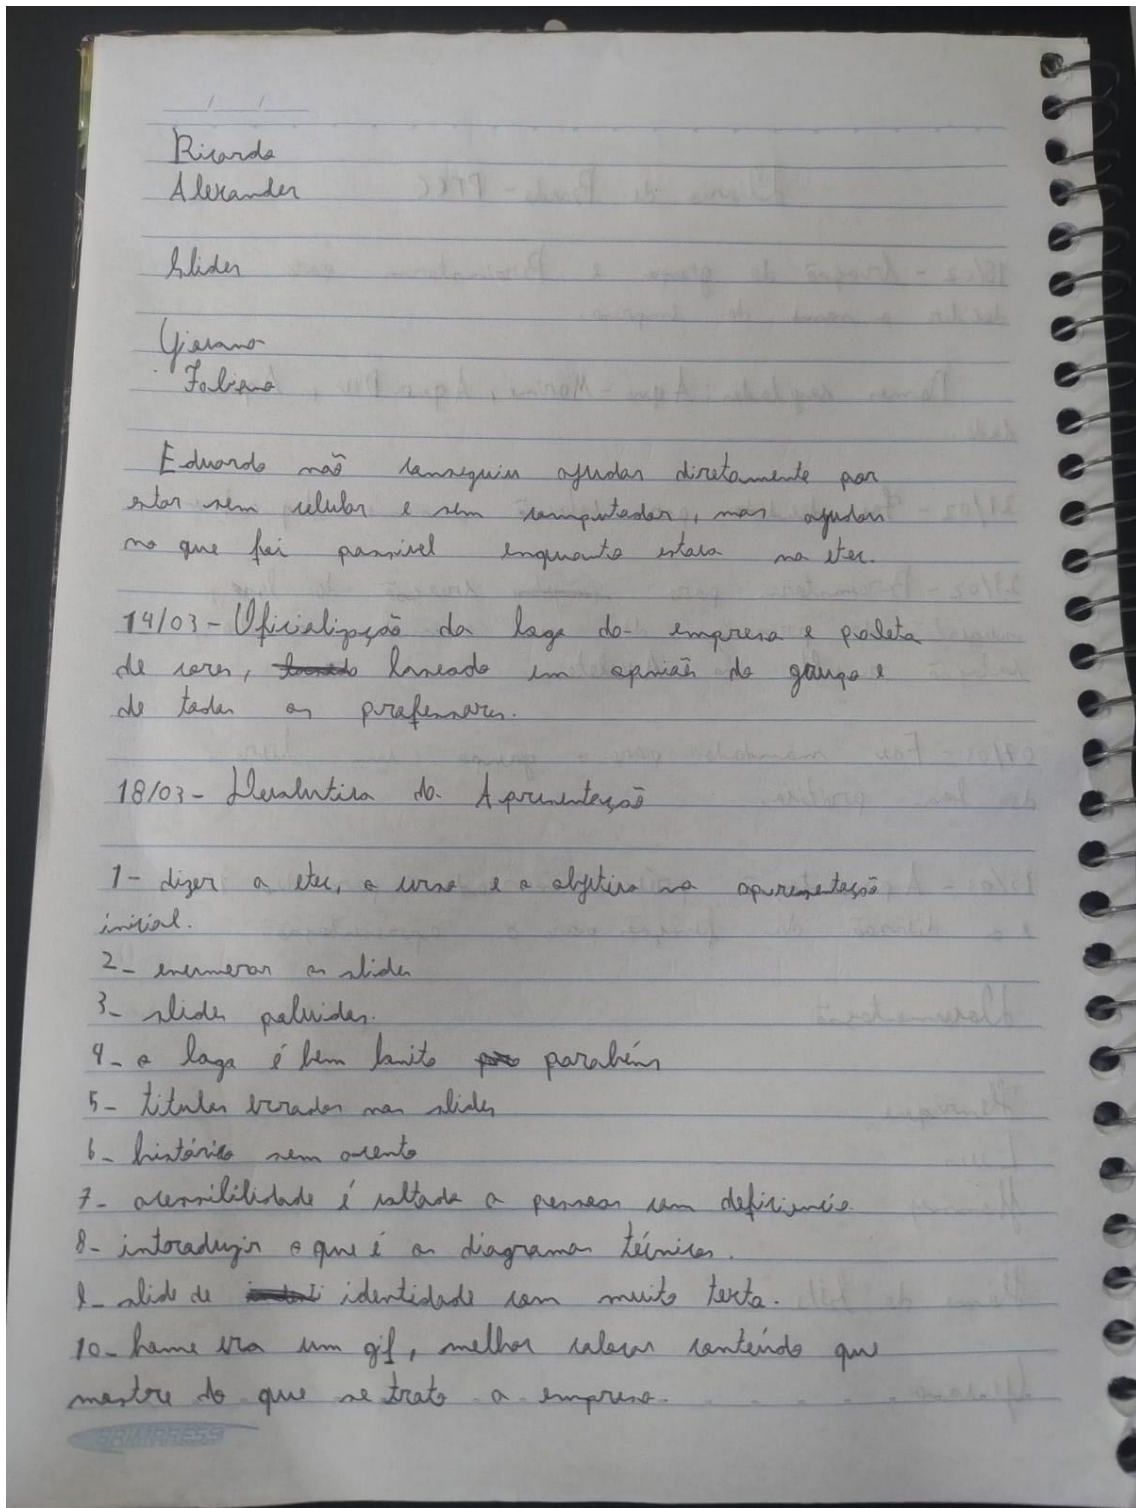 Ricardo
Alexander
Slides
Giovano
Fabiano
Eduardo não conseguiu ajudar diretamente por
estar sem celular e sem computador, mas ajudou
no que foi possivel enquanto estava na etec.
14/03 - Oficialização da logo da empresa e paleta
de cores, baseado em opniões do grupo e
de todos os professores.
18/03 - Devolutiva da Apresentação
1- dizer a etec, o curso e o objetivo na apresentação
inicial.
2- enumerar os slides
3- slides poluidos.
4- a logo é bem bonito parabéns
5- titulos errados nos slides
6- histórico sem acento
7- acessibilidade é voltada a pessoas com deficiencia.
8- introduzir o que é os diagramas técnicos.
9- slide de identidade com muito texto.
10- home era um gif, melhor colocar conteúdo que
mostre do que se trata a empresa.
SPIMPRESS